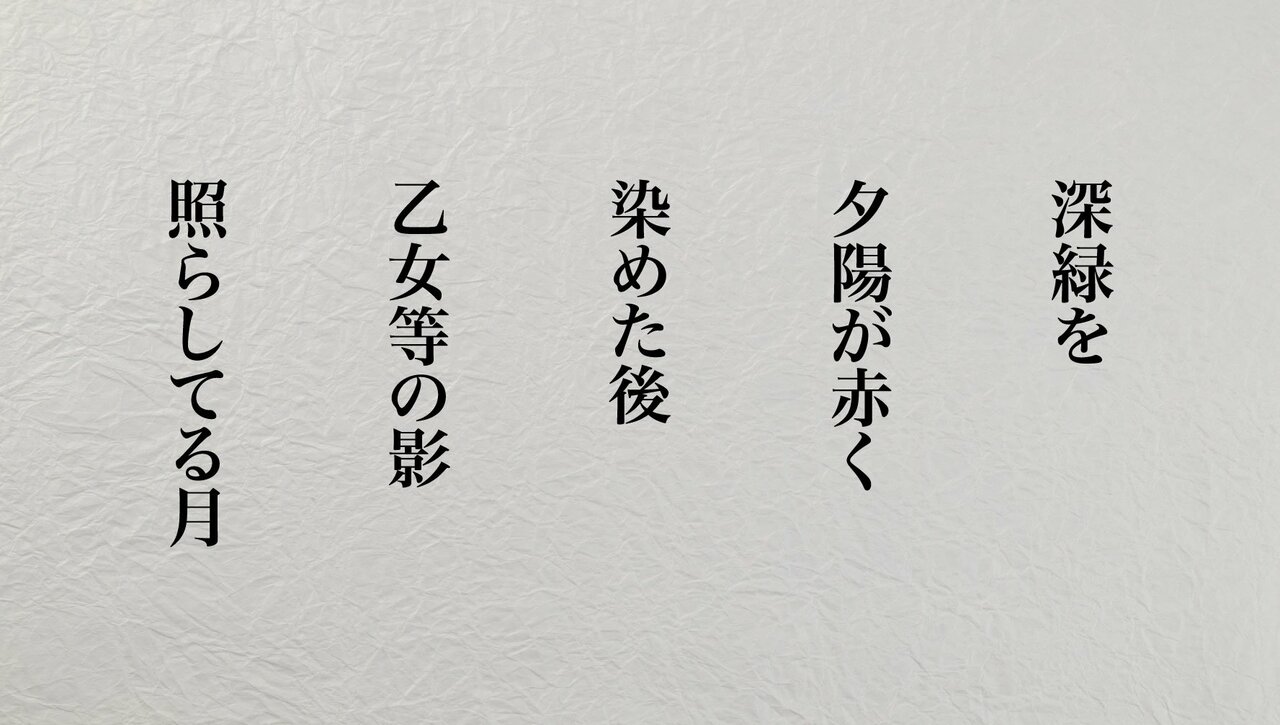 深緑を
夕陽が赤く
染めた後
乙女等の影
照らしてる月